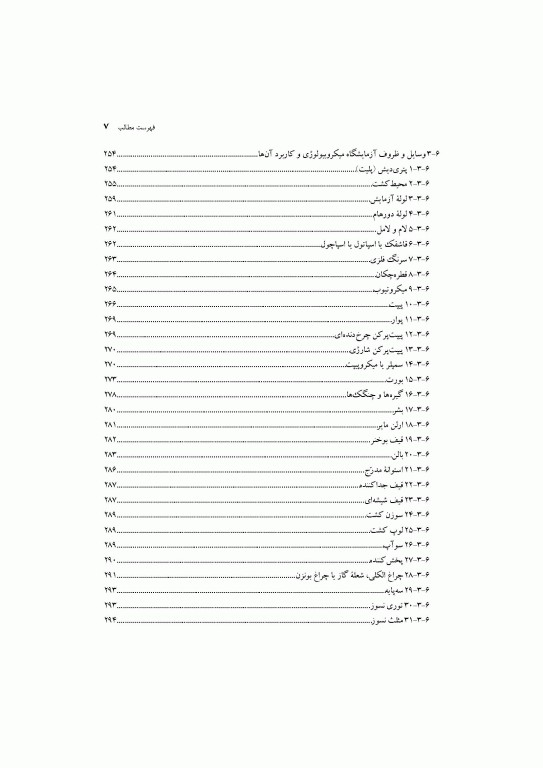 فهرست مطالب ۷
۶-۳ وسایل و ظروف آزمایشگاه میکروبیولوژی و کاربرد آن‌ها ۲۵۴
۶-۳-۱ پتری‌دیش (پلیت) ۲۵۴
۶-۳-۲ محیط کشت ۲۵۵
۶-۳-۳ لولهٔ آزمایش ۲۵۹
۶-۳-۴ لولهٔ دورهام ۲۶۱
۶-۳-۵ لام و لامل ۲۶۲
۶-۳-۶ قاشقک یا اسپاتول یا اسپاچول ۲۶۲
۶-۳-۷ سرنگ فلزی ۲۶۳
۶-۳-۸ قطره‌چکان ۲۶۴
۶-۳-۹ میکروتیوب ۲۶۵
۶-۳-۱۰ پیپت ۲۶۶
۶-۳-۱۱ پوار ۲۶۹
۶-۳-۱۲ پیپت‌پرکن چرخ‌دنده‌ای ۲۶۹
۶-۳-۱۳ پیپت‌پرکن شارژی ۲۷۰
۶-۳-۱۴ سمپلر یا میکروپیپت ۲۷۰
۶-۳-۱۵ بورت ۲۷۳
۶-۳-۱۶ گیره‌ها و چنگک‌ها ۲۷۸
۶-۳-۱۷ بشر ۲۸۰
۶-۳-۱۸ ارلن مایر ۲۸۱
۶-۳-۱۹ قیف بوخنر ۲۸۲
۶-۳-۲۰ بالن ۲۸۳
۶-۳-۲۱ استوانهٔ مدرّج ۲۸۶
۶-۳-۲۲ قیف جداکننده ۲۸۷
۶-۳-۲۳ قیف شیشه‌ای ۲۸۷
۶-۳-۲۴ سوزن کشت ۲۸۹
۶-۳-۲۵ لوپ کشت ۲۸۹
۶-۳-۲۶ سوآپ ۲۸۹
۶-۳-۲۷ پخش‌کننده ۲۹۰
۶-۳-۲۸ چراغ الکلی، شعلهٔ گاز یا چراغ بونزن ۲۹۱
۶-۳-۲۹ سه‌پایه ۲۹۳
۶-۳-۳۰ توری نسوز ۲۹۳
۶-۳-۳۱ مثلث نسوز ۲۹۴